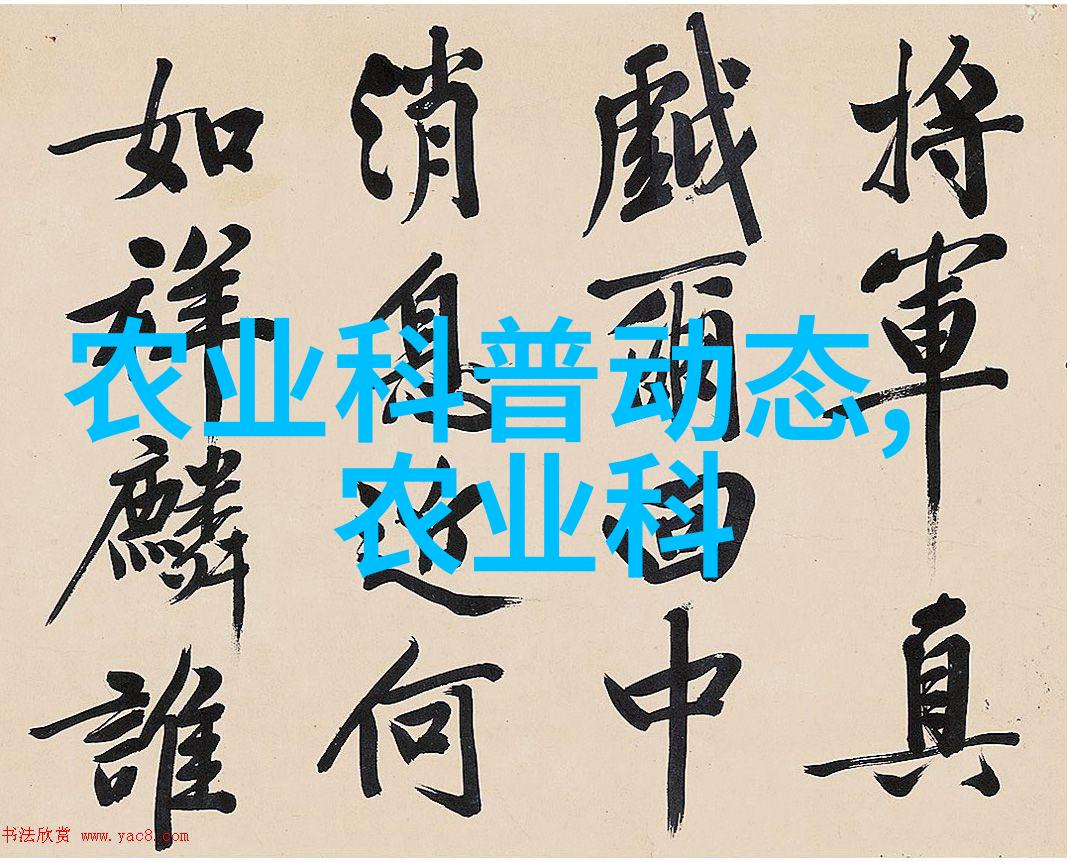 將軍真
戲爾中
消息近何
如祥麟誰
农业科普动态,
农业科
书法欣赏 www.yac8.com